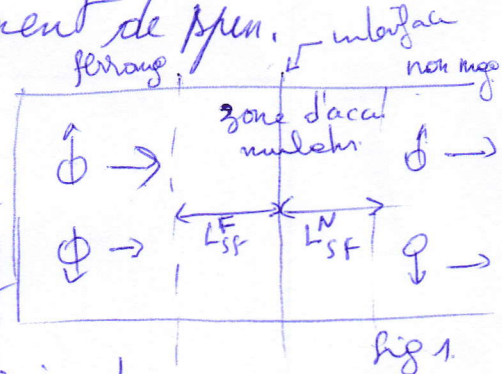 de spin.
interface
ferromag
non mag
zone d'accu
mulation
L^F_SF
L^N_SF
fig 1.